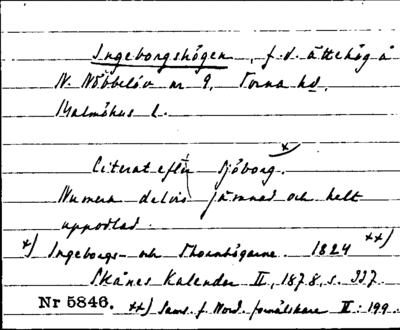 Ingeborgshögen, f.d. ättehög å
N. Nöbbelöv nr 9, Torna hd.
Malmöhus l.
Citerat efter Sjöborg. x)
Numera delvis jämnad och helt
uppodlad.
x) Ingeborgs- och Thornhögarne. 1824 xx)
Skånes Kalender II, 1878, s. 337.
Nr 5846. xx) Saml. f. Nord. fornälskare II: 199.